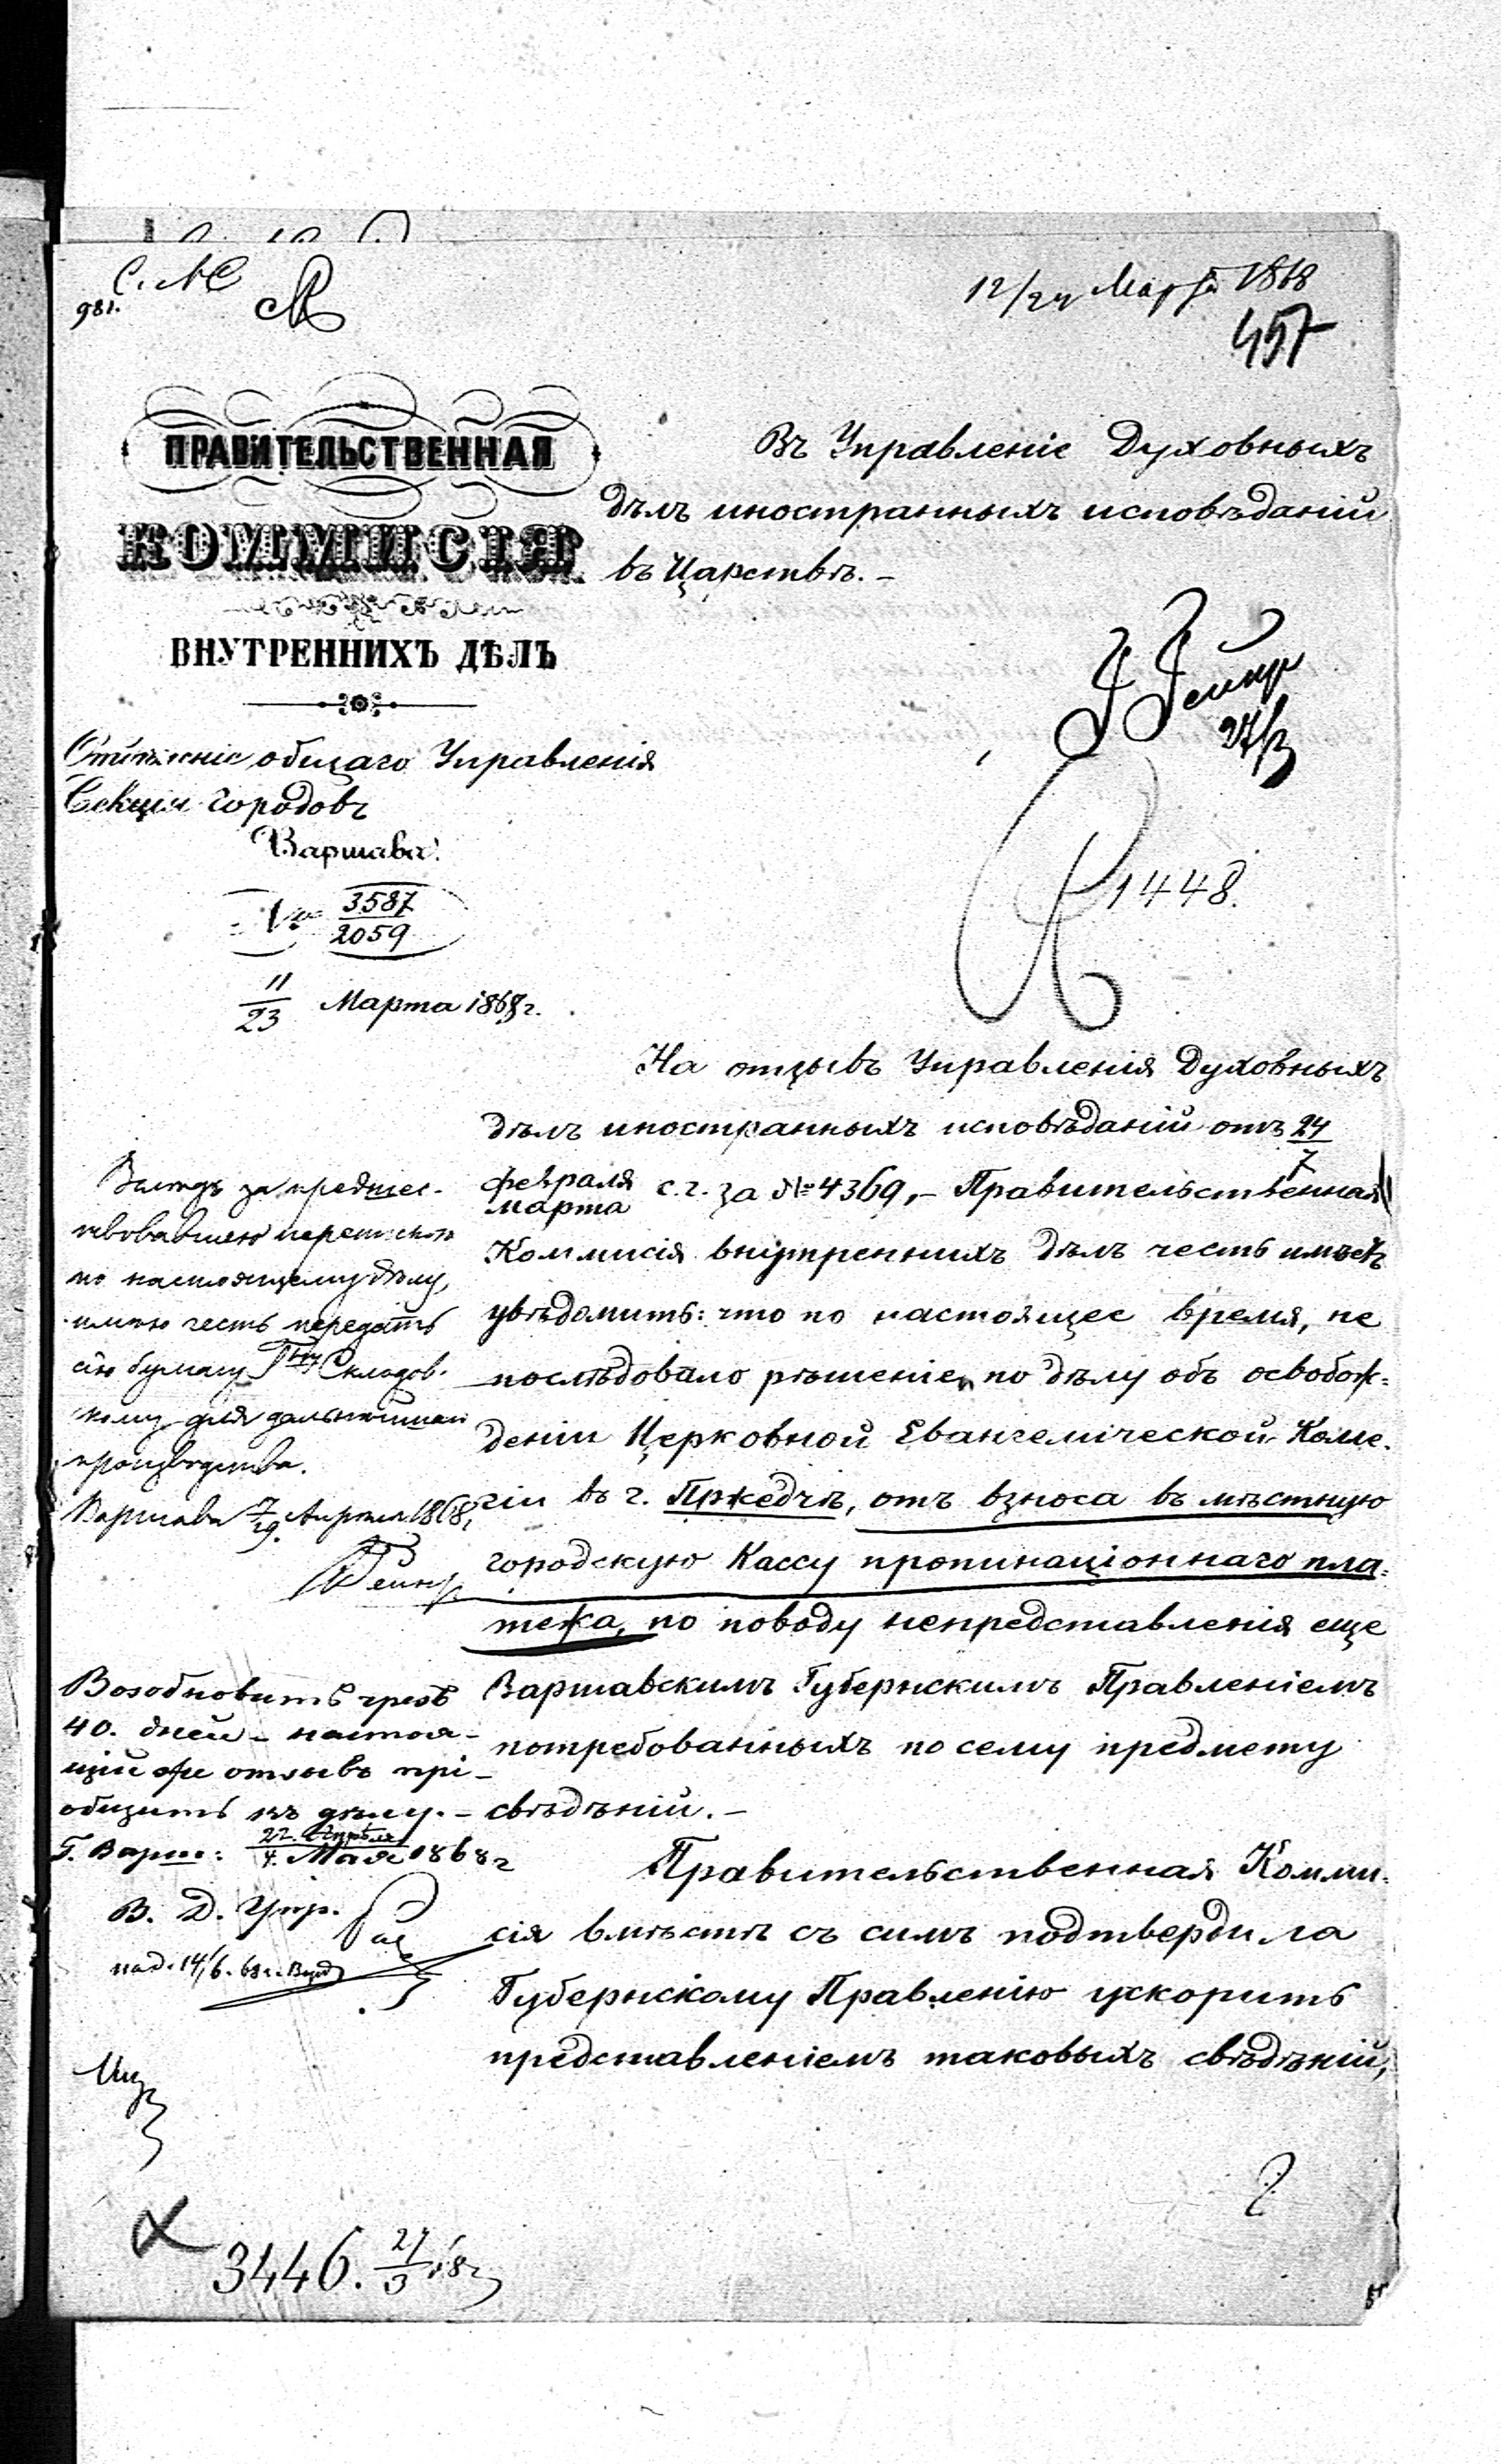 981.
12/24 Марта 1868
457
ПРАВИТЕЛЬСТВЕННАЯ
КОММИСІЯ
ВНУТРЕННИХЪ ДѢЛЪ
Отдѣленіе общаго Управленія
Секція городовъ
Варшава.
№ 3587
2059
11
23 Марта 1868 г.
Въ Управленіе Духовныхъ
дѣлъ иностранныхъ исповѣданій
въ Царствѣ.–
27/3
1448.
На отзывъ Управленія Духовныхъ
дѣлъ иностранныхъ исповѣданій отъ 24
7
февраля
марта с.г. за № 4369,– Правительственная
Коммисія внутреннихъ дѣлъ честь имѣетъ
увѣдомить: что по настоящее время, не
послѣдовало рѣшеніе, по дѣлу объ освобож=
деніи Церковной Евангелической Колле-
гіи въ г. Пржедчѣ, отъ взноса въ мѣстную
городскую Кассу пропинаціоннаго пла=
тежа, по поводу непредставленія еще
Варшавскимъ Губернскимъ Правленіемъ
потребованныхъ по сему предмету
свѣдѣній.–
Правительственная Комми=
сія вмѣстѣ съ симъ подтвердила
Губернскому Правленію ускорить
представленіемъ таковыхъ свѣдѣній,
за предшес-
твовавшею перепискою
по настоящему дѣлу,
имѣю честь передать
сію бумагу Гну Складов-
скому для дальнѣйшаго
производства.
Варшава 7/19. Апрѣля 1868,
Возобновить чрезъ
40. дней – настоя-
щій же отзывъ прі-
общить къ дѣлу.–
Г. Варш: 22. Апрѣля
4. Мая 1868 г
В. Д. Упр.
3446. 27/3 68 г